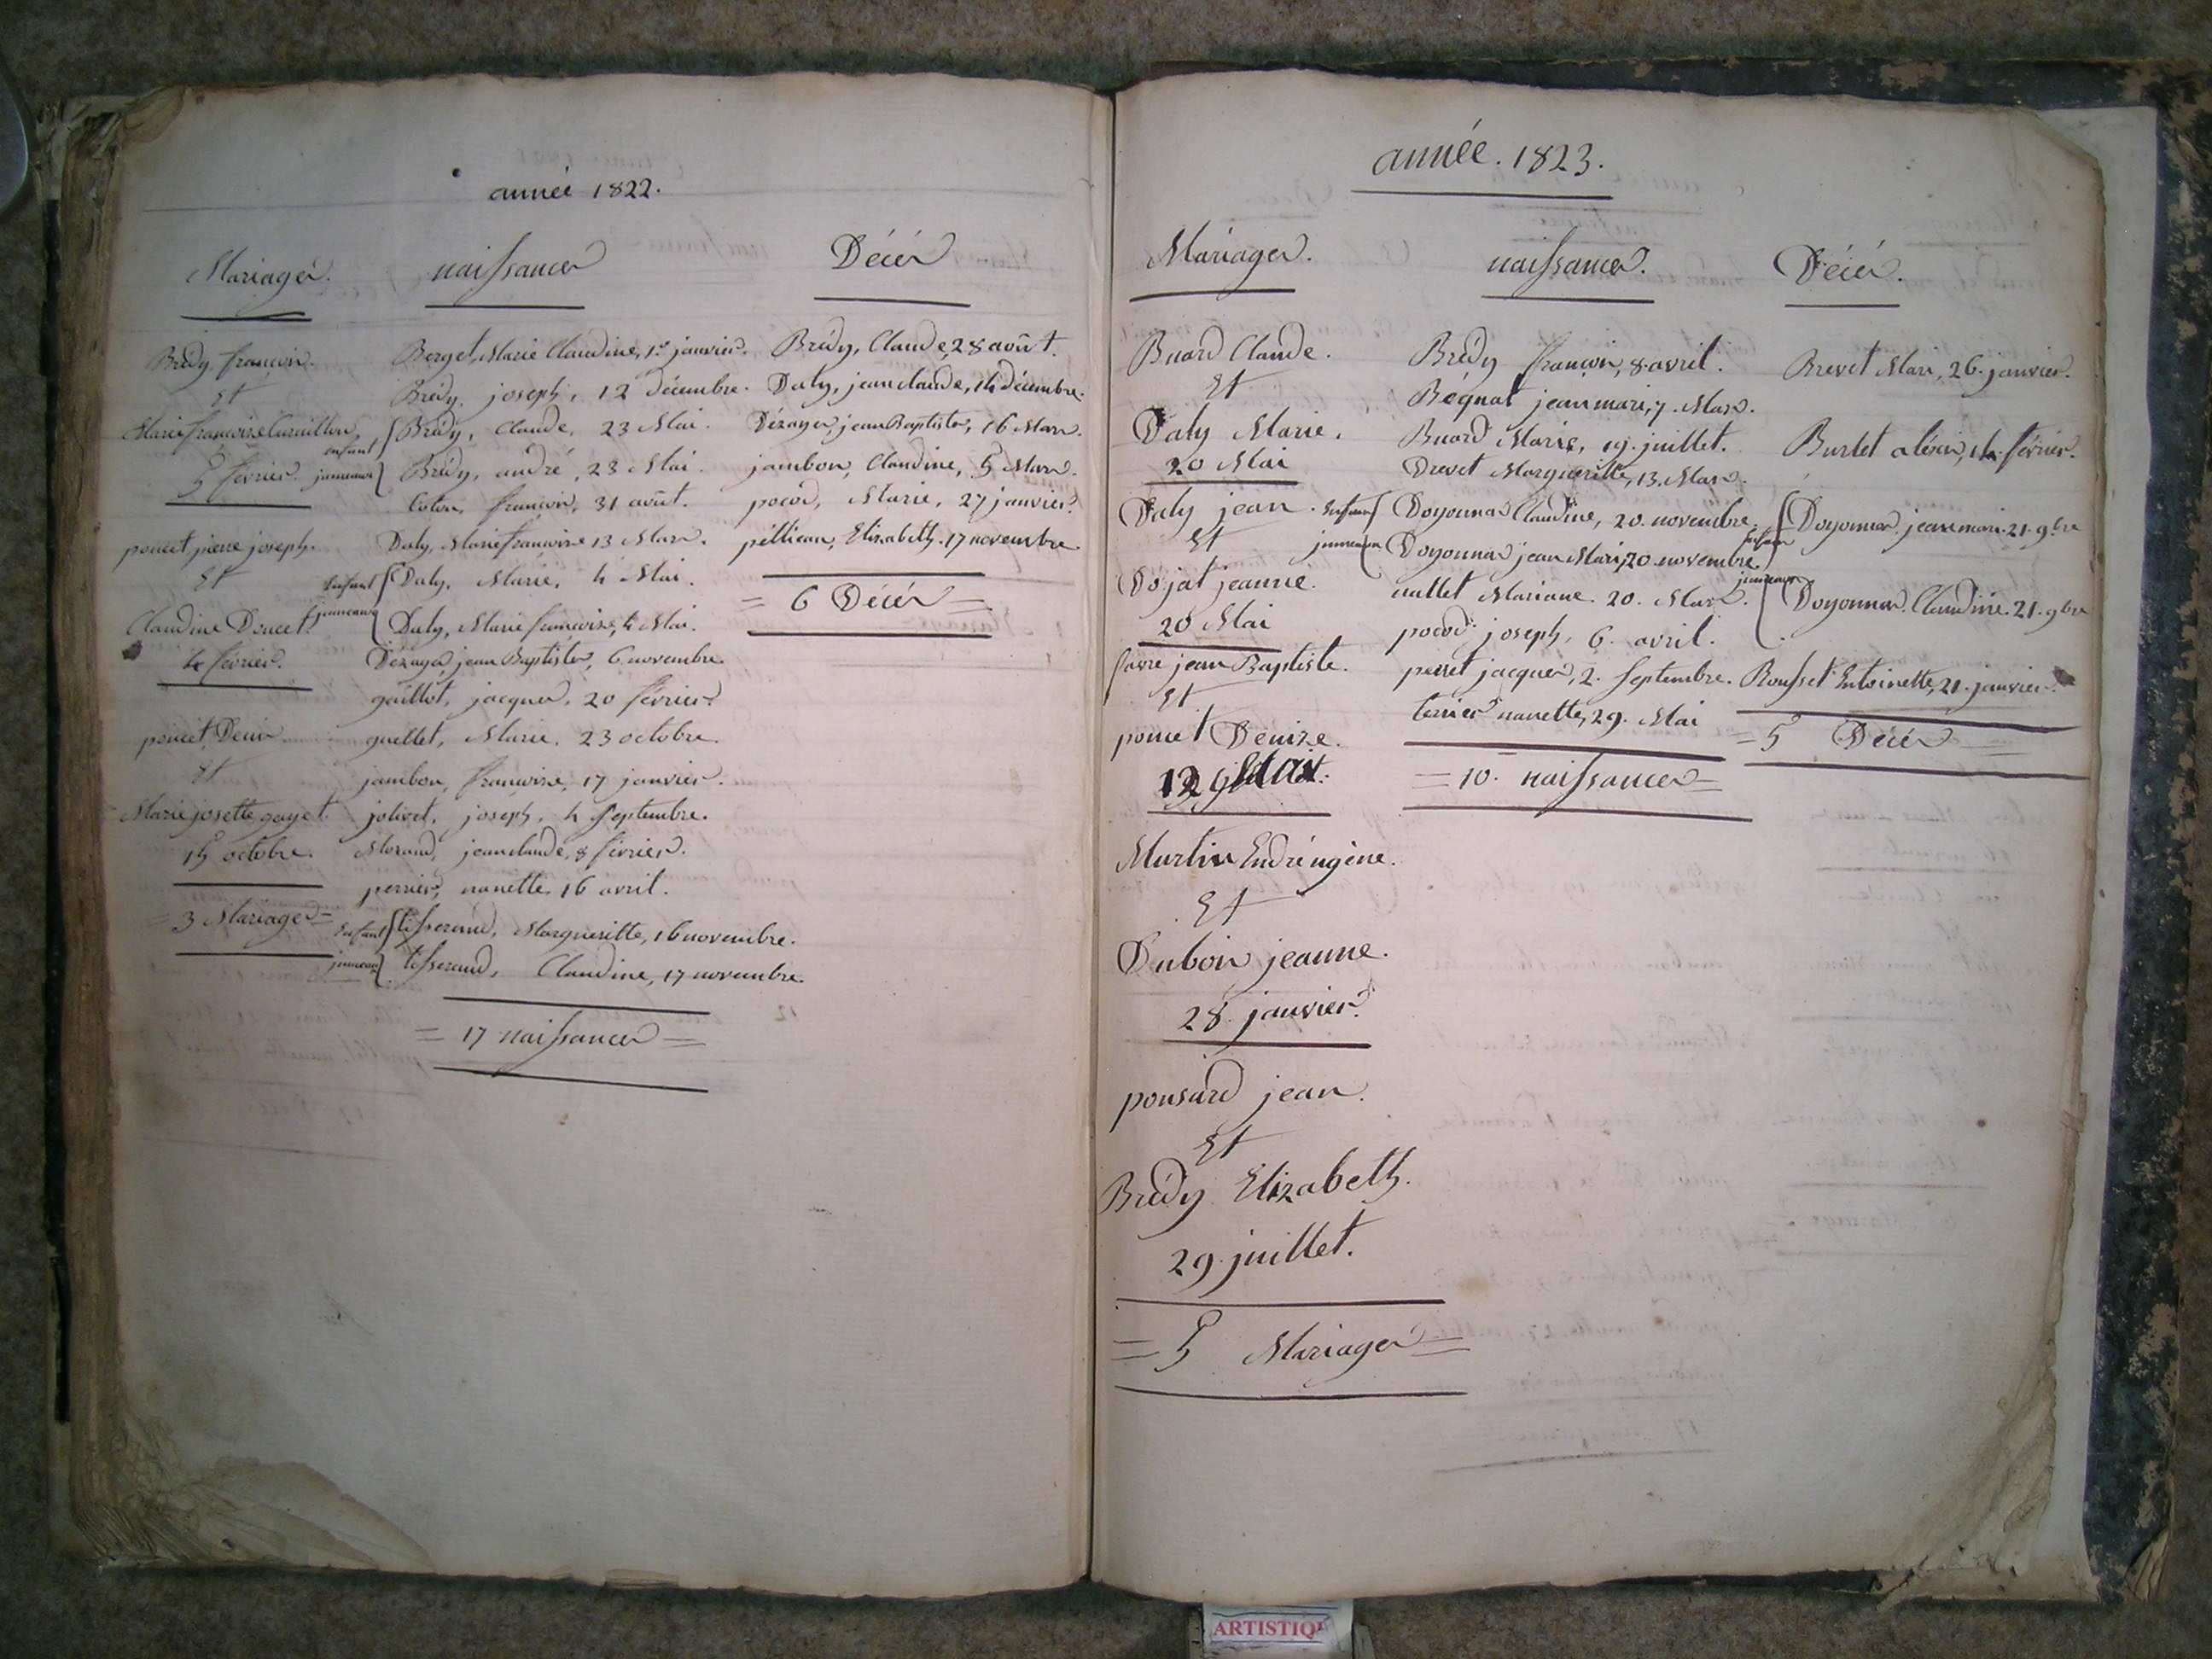 année 1822.
Mariages.
Brédy françois.
Et
Marie françoise
5 février.
poncet pierre joseph.
Et
Claudine Doucet.
4 février.
poncet Denis
Et
Marie josette gayet.
15 octobre.
= 3 Mariages =
naissances
Berget, Marie Claudine, 1er janvier.
Brédy, joseph, 12 décembre.
Brédy, Claude, 23 Mai.
enfants
jumeaux
Brédy, andré, 23 Mai.
françois, 31 août.
Daly, Marie françoise 13 Mars.
Enfants
Daly, Marie, 4 Mai.
jumeaux
Daly, Marie françoise, 4 Mai.
Dézayes jean Baptiste, 6 novembre.
guillot, jacques, 20 février.
guillet, Marie, 23 octobre.
jambon, françoise, 17 janvier.
jolivet, joseph, 4 Septembre.
Morand, jean claude, 8 février.
perrier, nanette, 16 avril.
Enfants
tisserand, Margueritte, 16 novembre.
jumeaux
tisserand, Claudine, 17 novembre.
= 17 naissances =
Décès
Brédy, Claude, 28 août.
Daly, jean claude, 14 décembre.
Dézayes, jean Baptiste, 16 Mars.
jambon, Claudine, 5 Mars.
pocod, Marie, 27 janvier.
Elizabeth. 17 novembre.
= 6 Décès =
année. 1823.
Mariages.
Buard Claude.
Et
Daly Marie.
20 Mai
Daly jean.
Et
Dojat jeanne.
20 Mai
favre jean Baptiste.
Et
poncet Denize.
12
Martin
Et
Dubois jeanne.
28. janvier.
ponsard jean.
Et
Brédy Elizabeth.
29. juillet.
= 5 Mariages =
naissances.
Brédy françois, 8. avril.
Bégnat jean mari, 7. Mars.
Buard Marie, 19. juillet.
Drevet Margueritte, 13. Mars.
Enfants
Doyonnas Claudine, 20. novembre.
jumeaux
Doyonnas jean Mari, 20. novembre.
nallet Mariane. 20. Mars.
pocod joseph, 6. avril.
perret jacques, 2. Septembre.
terrier nanette, 29. Mai
= 10. naissances =
Décès.
Brevet Mari, 26. janvier.
Burlet aléxis, 14. février.
Doyonnas. jean mari. 21. 9bre
Enfants
jumeaux
Doyonnas. Claudine. 21. 9bre
Rousset Entoinette, 21. janvier.
= 5 Décès =
ARTISTIQ